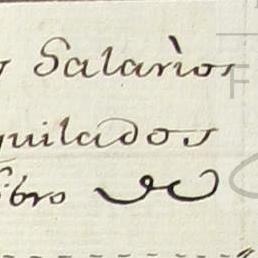 y Salarìos
quilados
libro de